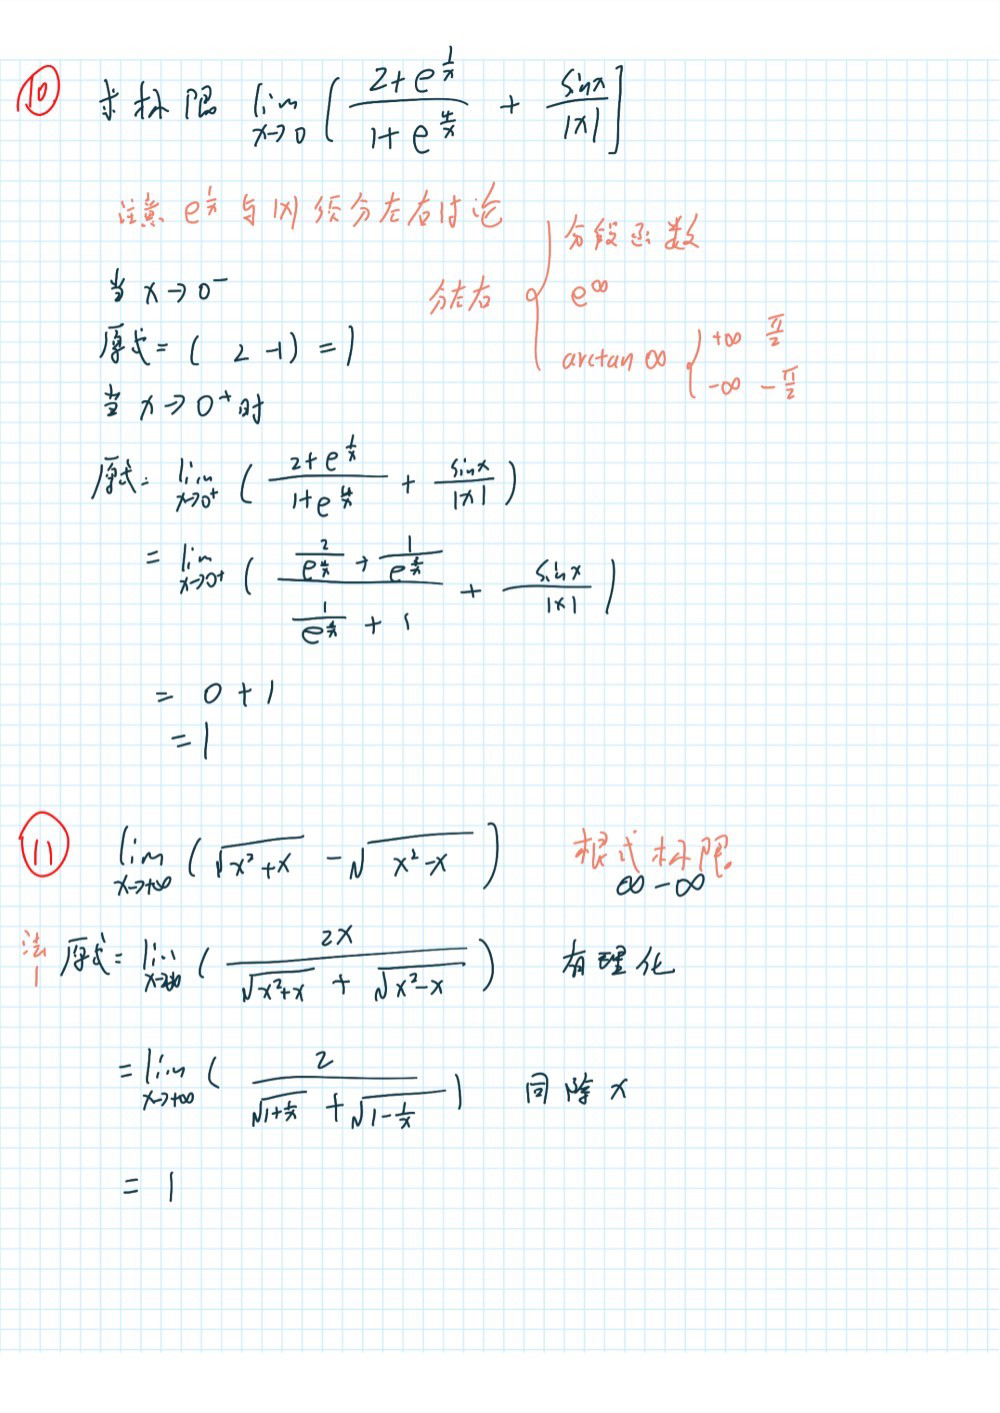 ⑩ 求极限 lim_{x→0} [ (2+e^{1/x})/(1+e^{4/x}) + sinx/|x| ]
注意 e^{1/x} 与 |x| 须分左右讨论
分左右 { 分段函数
e^∞
arctan ∞ { +∞ π/2
-∞ -π/2
当 x→0⁻
原式 = ( 2 -1) = 1
当 x→0⁺时
原式= lim_{x→0⁺} ( (2+e^{1/x})/(1+e^{4/x}) + sinx/|x| )
= lim_{x→0⁺} ( (2/e^{4/x} + 1/e^{3/x})/(1/e^{4/x} + 1) + sinx/|x| )
= 0 + 1
= 1
⑪ lim_{x→+∞} ( √(x²+x) - √(x²-x) ) 根式极限
∞-∞
法1 原式= lim_{x→+∞} ( 2x/(√(x²+x) + √(x²-x)) ) 有理化
= lim_{x→+∞} ( 2/(√(1+1/x) + √(1-1/x)) ) 同除x
= 1